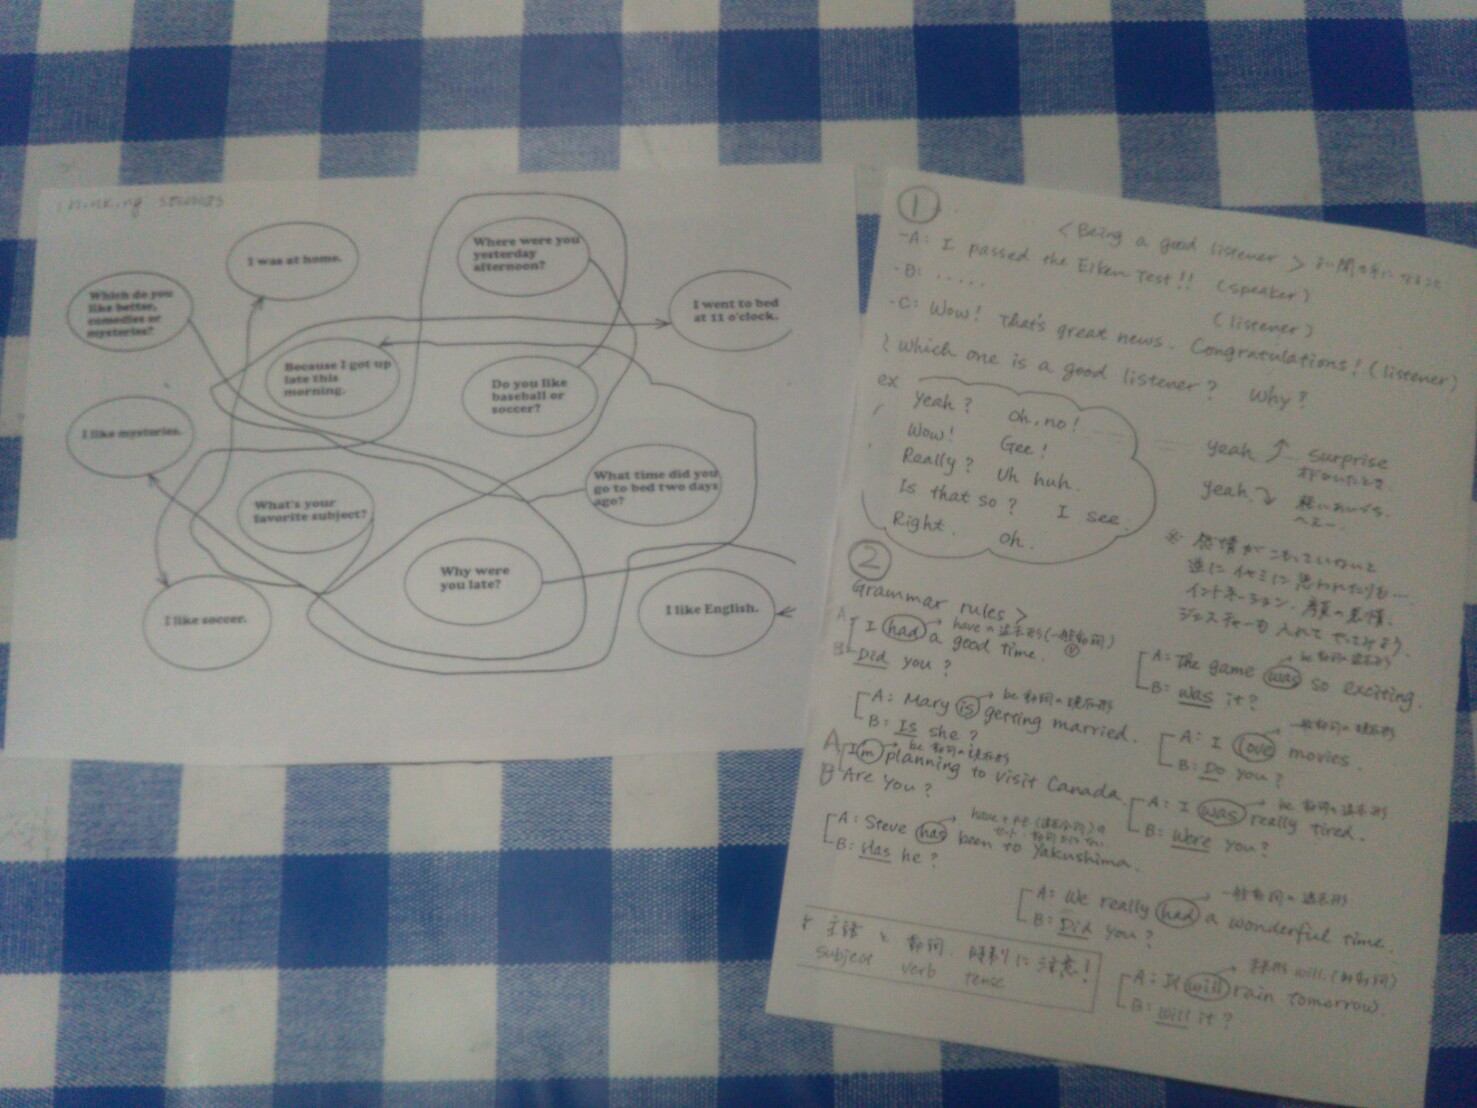 thinking strategies
I was at home.
Where were you
yesterday
afternoon?
Which do you
like better,
comedies or
mysteries?
I went to bed
at 11 o'clock.
Because I got up
late this
morning.
Do you like
baseball or
soccer?
I like mysteries.
What's your
favorite subject?
What time did you
go to bed two days
ago?
Why were
you late?
I like soccer.
I like English.
①
<Being a good listener>
-A: I passed the Eiken Test!! (speaker)
-B: ..... (listener)
-C: Wow! That's great news. Congratulations! (listener)
Which one is a good listener? Why?
ex
Yeah? Oh, no!
Wow! Gee!
Really? Uh huh.
Is that so? I see.
Right. Oh.
yeah Surprise
yeah
※ 感情がこもっていないと
逆にイヤミに思われたりも...
イントネーション、顔の表情、
ジェスチャーも入れてやってみよう。
②
Grammar rules>
A I had a good time. haveの過去形(一般動詞)
B Did you?
A: The game was so exciting. be動詞の過去形
B: Was it?
A: Mary is getting married. be動詞の現在形
B: Is she?
A: I love movies. 一般動詞の現在形
B: Do you?
A I'm planning to visit Canada. be動詞の現在形
B Are you?
A: I was really tired. be動詞の過去形
B: Were you?
A: Steve has been to Yakushima.
B: Has he?
A: We really had a wonderful time. 一般動詞の過去形
B: Did you?
主語と動詞、時制に注意!
subject verb tense
A: It will rain tomorrow.
B: Will it?